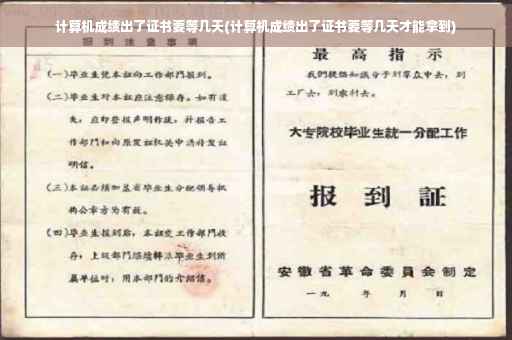 计算机成绩出了证书要等几天(计算机成绩出了证书要等几天才能拿到)
报到注意事项
(一)毕业生凭本证向工作部门报到。
(二)毕业生对本证应注意保存。如有遗
失，应即登报声明作废，并报告工
作部门和向原发证机关申请补发证
明信。
(三)本证必须加盖省毕业生分配领导机
构公章方为有效。
(四)毕业生报到后，本证交工作部门收
存；上级部门继续转派毕业生到所
属单位时，用本部门的介绍信。
最高指示
我们提倡知识分子到群众中去，到
工厂去，到农村去。
大专院校毕业生统一分配工作
报到证
安徽省革命委员会制定
一九 年 月 日